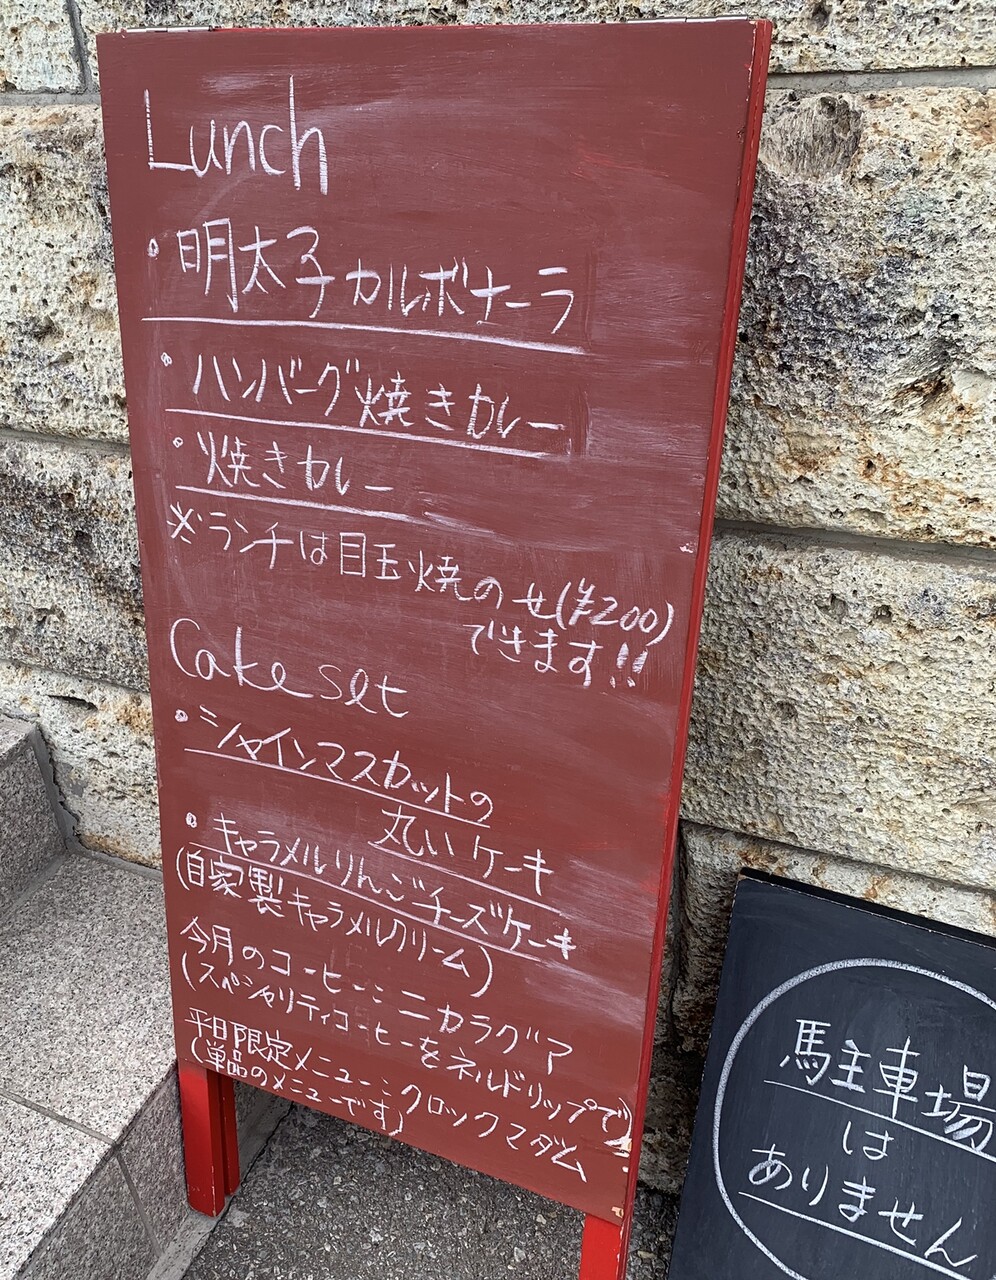 Lunch
・明太子カルボナーラ
・ハンバーグ焼きカレー
・焼きカレー
※ランチは目玉焼のせ(¥200)
できます!!
Cake set
・シャインマスカットの
丸いケーキ
・キャラメルりんごチーズケーキ
(自家製キャラメルクリーム)
今月のコーヒー:ニカラグア
(スペシャリティコーヒーをネルドリップで)
平日限定メニュー:クロックマダム
(単品のメニューです)
馬主車場
は
ありません